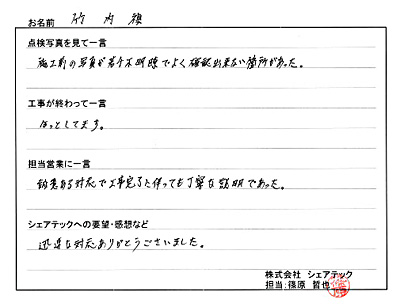 お名前 竹内 様
点検写真を見て一言
施工前の写真が若干不明瞭でよく確認出来ない箇所があった。
工事が終わって一言
ほっとしてます。
担当営業に一言
誠意ある対応で工事完了と伴っても丁寧な説明であった。
シェアテックへの要望・感想など
迅速な対応ありがとうございました。
株式会社 シェアテック
担当:篠原 哲也